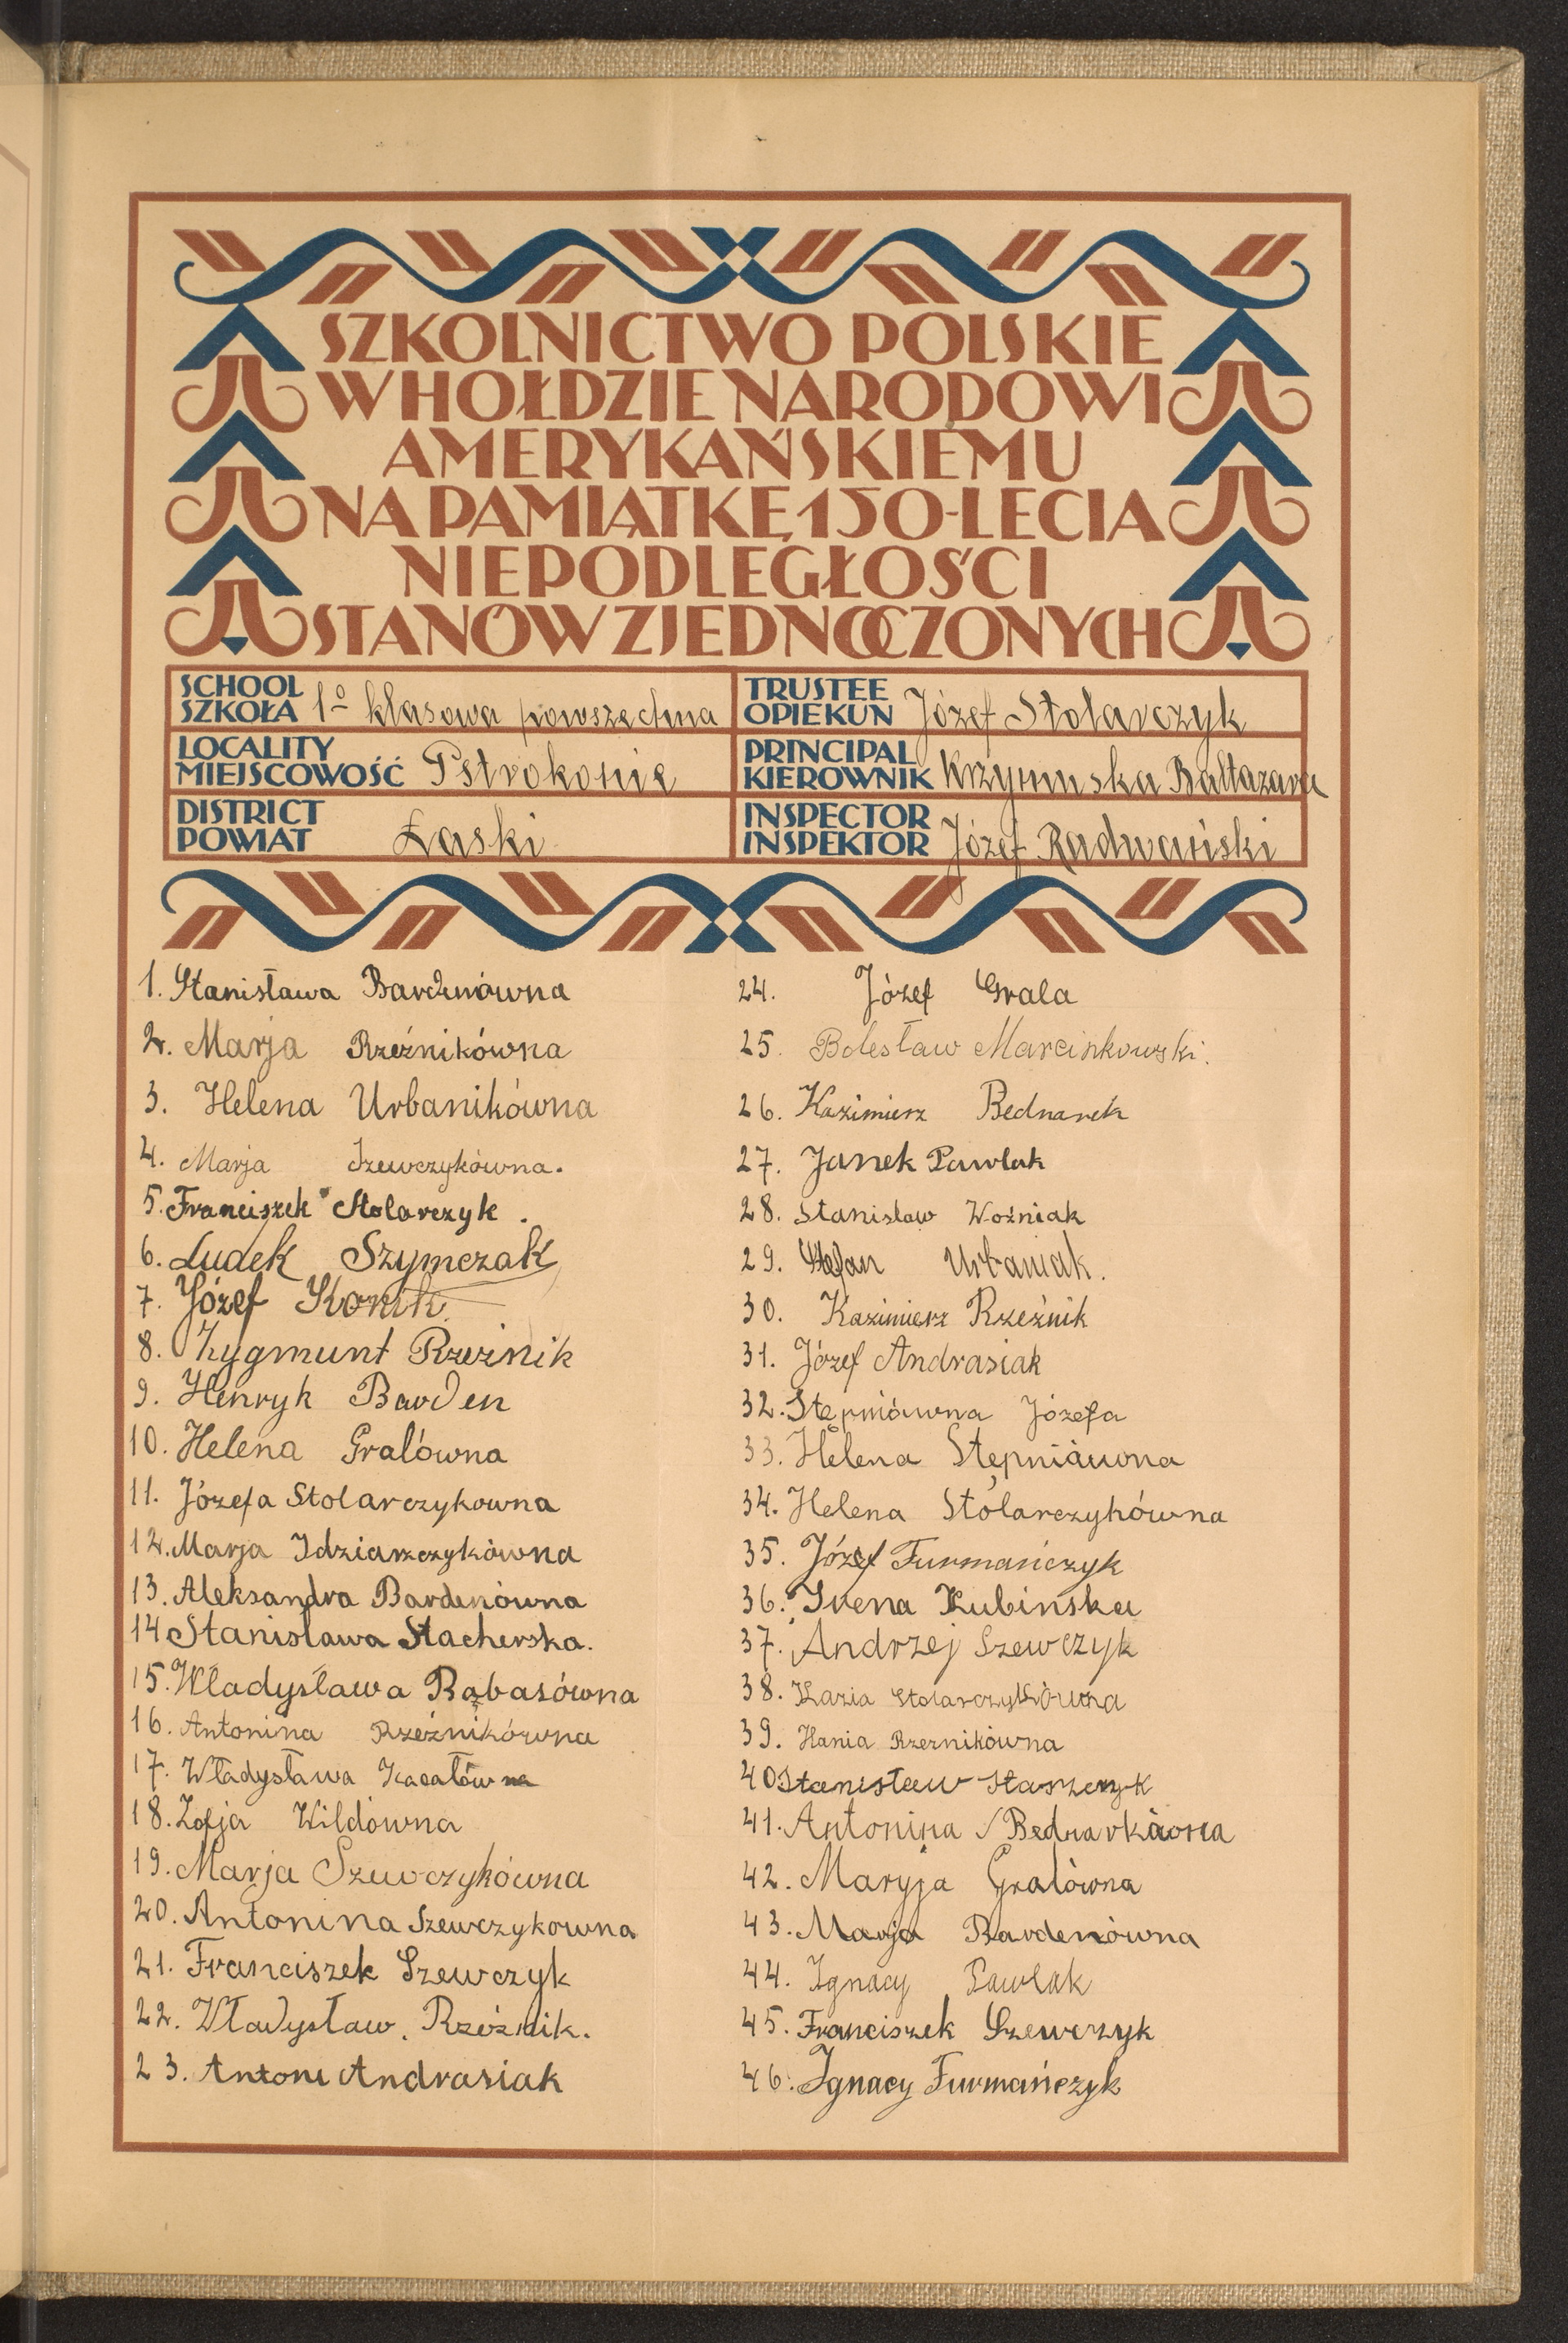 SZKOLNICTWO POLSKIE
W HOŁDZIE NARODOWI
AMERYKAŃSKIEMU
NA PAMIĄTKĘ 150-LECIA
NIEPODLEGŁOŚCI
STANÓW ZJEDNOCZONYCH
SCHOOL
SZKOŁA 1º klasowa powszechna
LOCALITY
MIEJSCOWOŚĆ Pstrokonie
DISTRICT
POWIAT Łaski
TRUSTEE
OPIEKUN Józef Stolarczyk
PRINCIPAL
KIEROWNIK Krzymuska Baltazara
INSPECTOR
INSPEKTOR Józef Radwański
1. Stanisława Bardenówna
2. Marja Rzeźnikówna
3. Helena Urbanikówna
4. Marja Szewczykówna.
5. Franciszek Stolarczyk.
6. Ludek Szymczak
7. Józef Konik.
8. Zygmunt Rzeźnik
9. Henryk Barden
10. Helena Gralówna
11. Józefa Stolarczykowna
12. Marja Idziaszczykówna
13. Aleksandra Bardenówna
14 Stanisława Stacherska.
15. Władysława Rąbasówna
16. Antonina Rzeźnikówna
17. Władysława Kacałówna
18. Zofja Wildówna
19. Marja Szewczykówna
20. Antonina Szewczykowna
21. Franciszek Szewczyk
22. Władysław. Rzeźnik.
23. Antoni Andrasiak
24. Józef Grala
25. Bolesław Marcinkowski.
26. Kazimierz Bednarek
27. Janek Pawlak
28. Stanisław Woźniak
29. Stefan Urbaniak.
30. Kazimierz Rzeźnik
31. Józef Andrasiak
32. Stępniówna Józefa
33. Helena Stępniówna
34. Helena Stolarczykówna
35. Józef Furmańczyk
36. Irena Kubinska
37. Andrzej Szewczyk
38. Kazia Stolarczykówna
39. Hania Rzernikówna
40 Stanisław Staszczyk
41. Antonina Bednarkówna
42. Maryja Gralówna
43. Marja Bardenówna
44. Ignacy Pawlak
45. Franciszek Szewczyk
46. Ignacy Furmańczyk